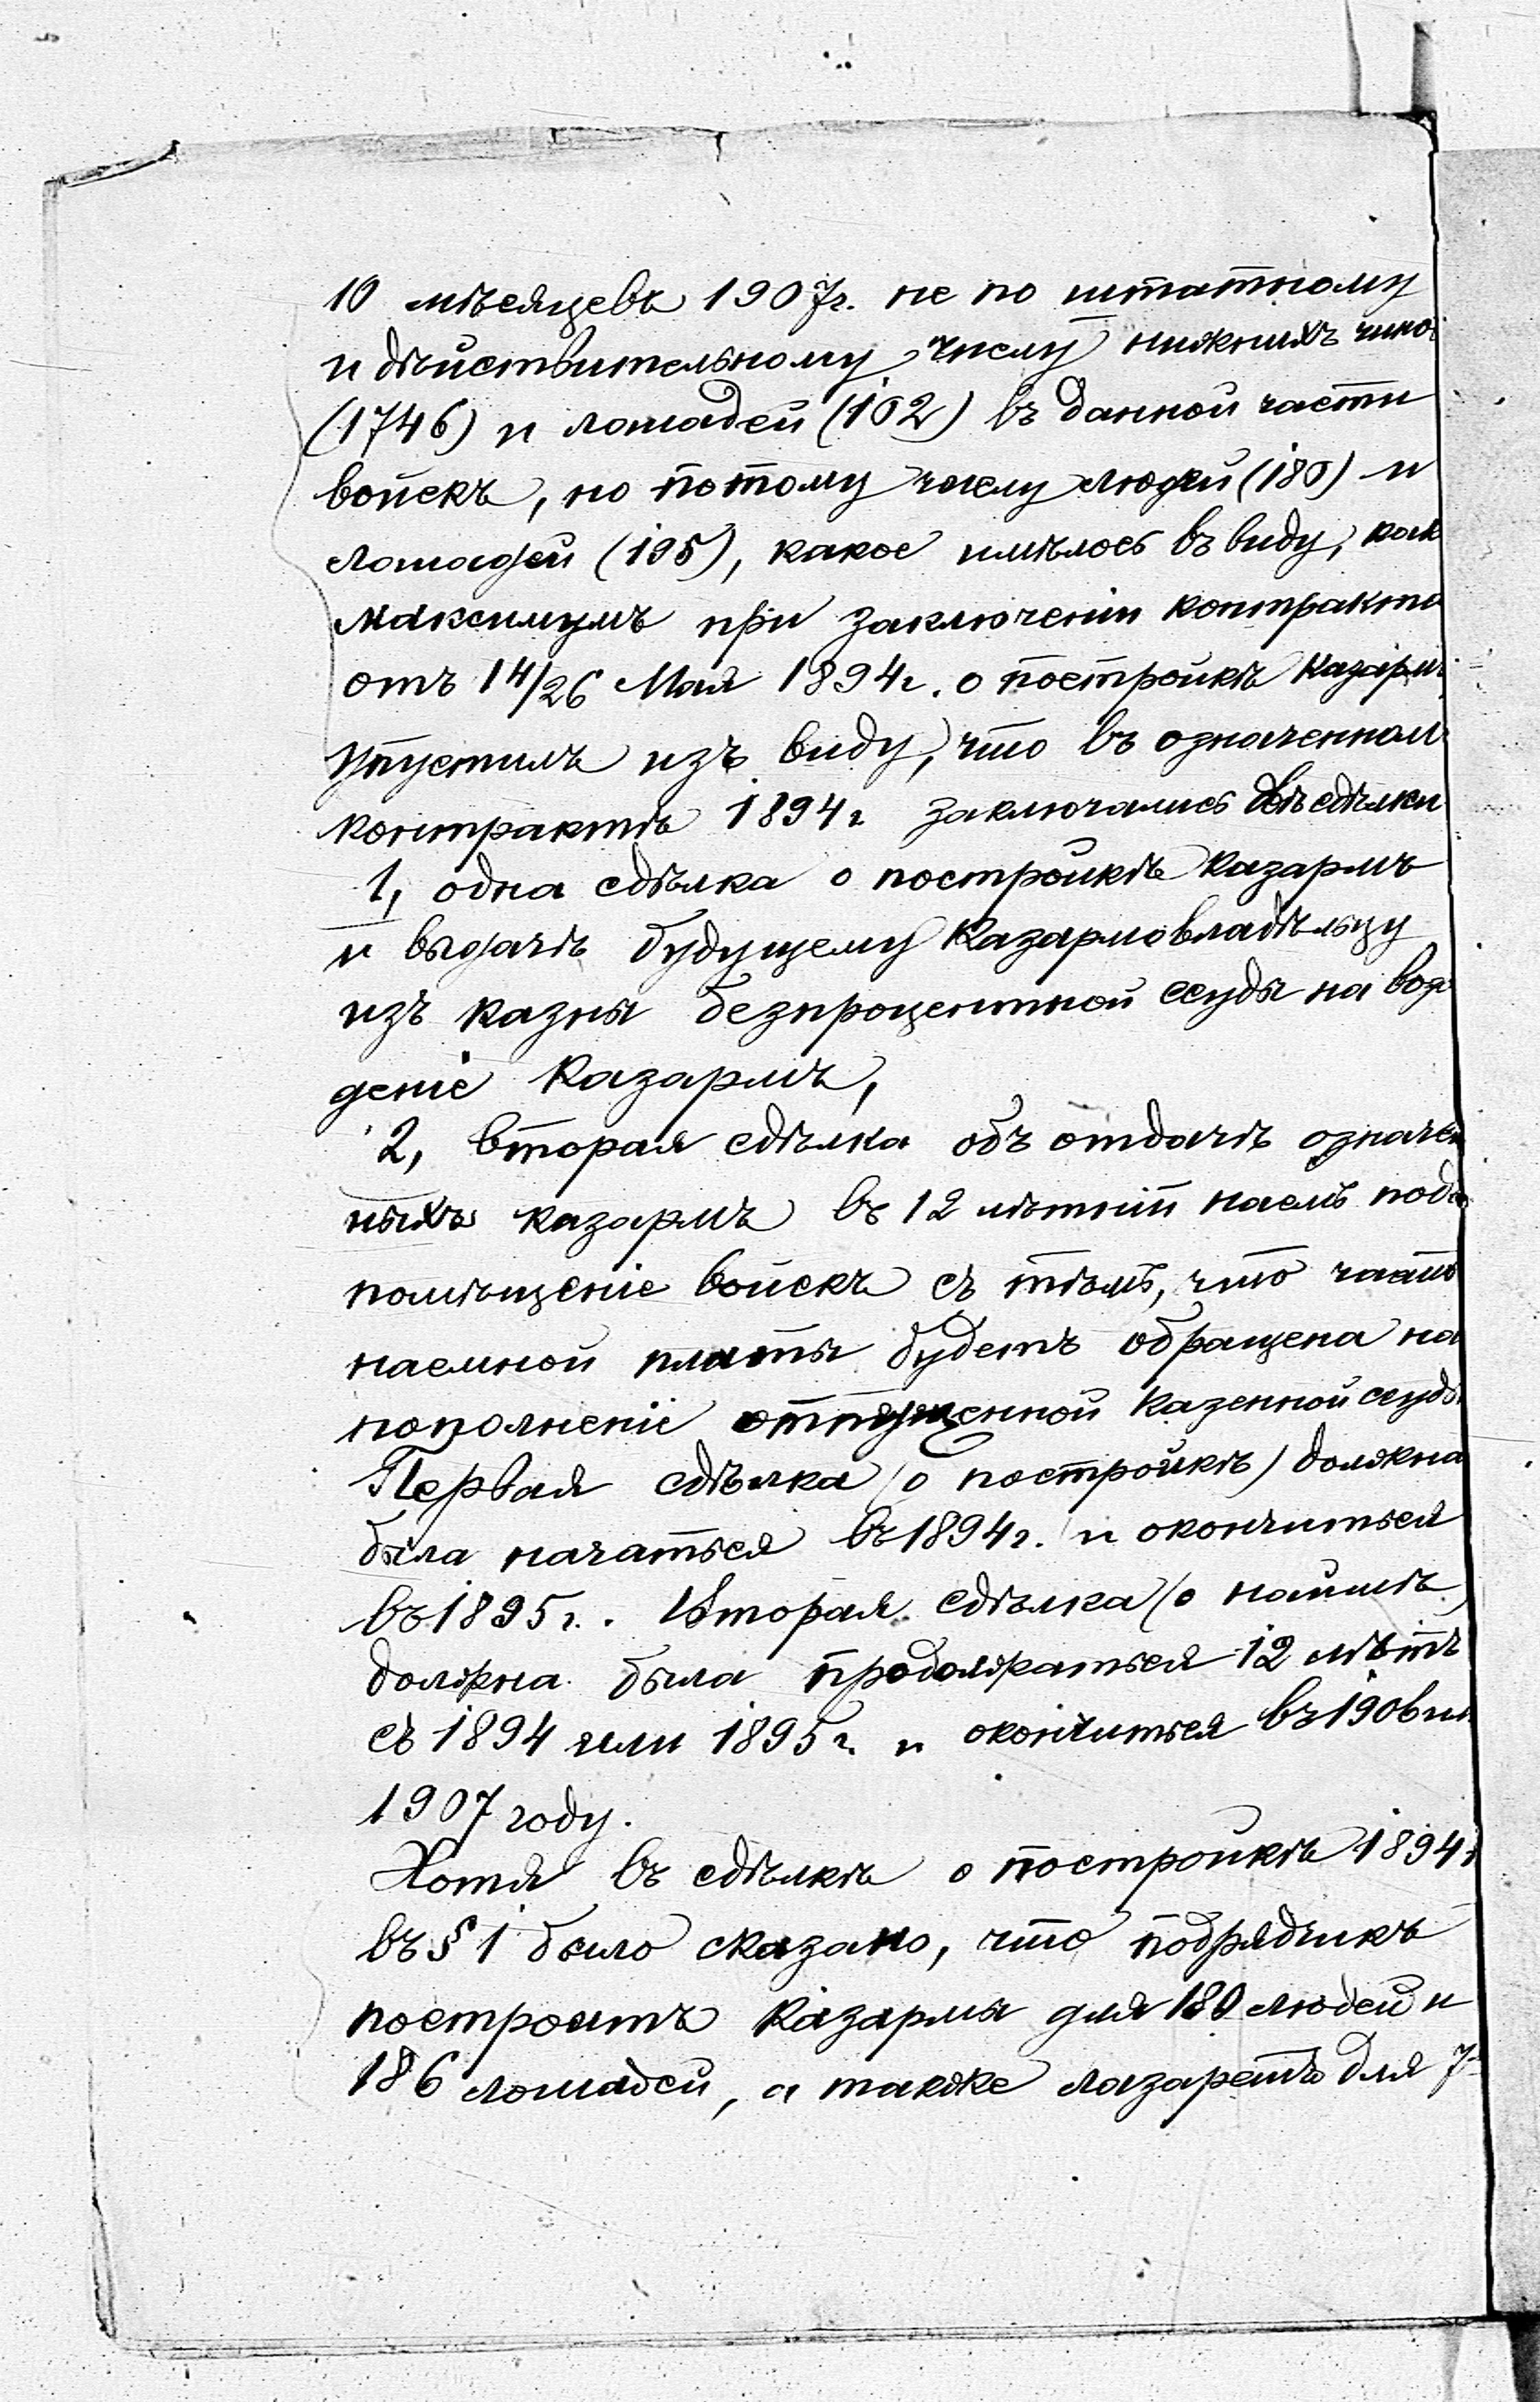 10 мѣсяцевъ 1907г. не по штатному
и дѣйствительному числу нижнихъ чино
(1746) и лошадей (102) въ данной части
войскъ, но потому числу людей (180) и
лошадей (195), какое имѣлось въ виду, какъ
максимумъ при заключеніи контракта
отъ 14/26 Мая 1894г. о постройкѣ казармъ
упустилъ изъ виду, что въ означенном
контрактѣ 1894г. заключались двѣ сдѣлки
1, одна сдѣлка о постройкѣ казармъ
и выдачѣ будущему казармовладѣльцу
изъ казны безпроцентной ссуды на воз
деніе казармъ,
2, вторая сдѣлка объ отдачѣ означен
ныхъ казармъ въ 12 лѣтній наемъ подъ
помѣщеніе войскъ съ тѣмъ, что часть
наемной платы будетъ обращена на
пополненіе отпущенной казенной ссуды
Первая сдѣлка (о постройкѣ) должна
была начаться въ 1894г. и окончиться
въ 1895г.. Вторая сдѣлка (о наймѣ)
должна была продолжаться 12 лѣтъ
съ 1894 или 1895г. и окончиться въ 1906 или
1907 году.
Хотя въ сдѣлкѣ о постройкѣ 1894г
въ § 1 было сказано, что подрядчикъ
построитъ казармы для 180 людей и
186 лошадей, а также лазаретъ для 7